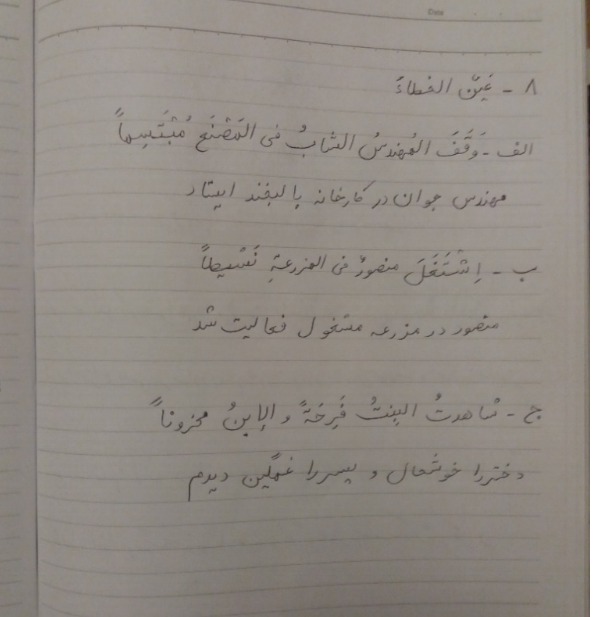 Date
۸ - عَيِّن الخطاءَ
الف - وَقَفَ المُهندسُ الشابُ فی المَصْنَعِ مُبْتَسِماً
مهندس جوان در کارخانه با لبخند ایستاد
ب - اِشْتَغَلَ منصورُ فی المزرعةِ نَشیطاً
منصور در مزرعه مشغول فعالیت شد
ج - شاهدتُ البِنتُ فَرِحَةً و الاِبنُ محزوناً
دختر را خوشحال و پسر را غمگین دیدم